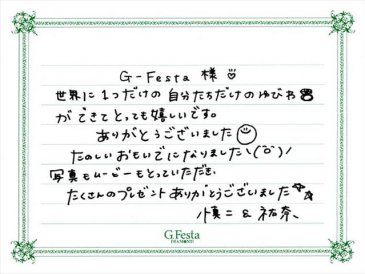 G-Festa 様♡
世界に1つだけの自分たちだけのゆびわ
ができてとっても嬉しいです。
ありがとうございました
たのしいおもいでになりました\(^o^)/
写真もムービーもとっていただき、
たくさんのプレゼントありがとうございました☆
慎二 & 祐奈。
G.Festa
DIAMOND